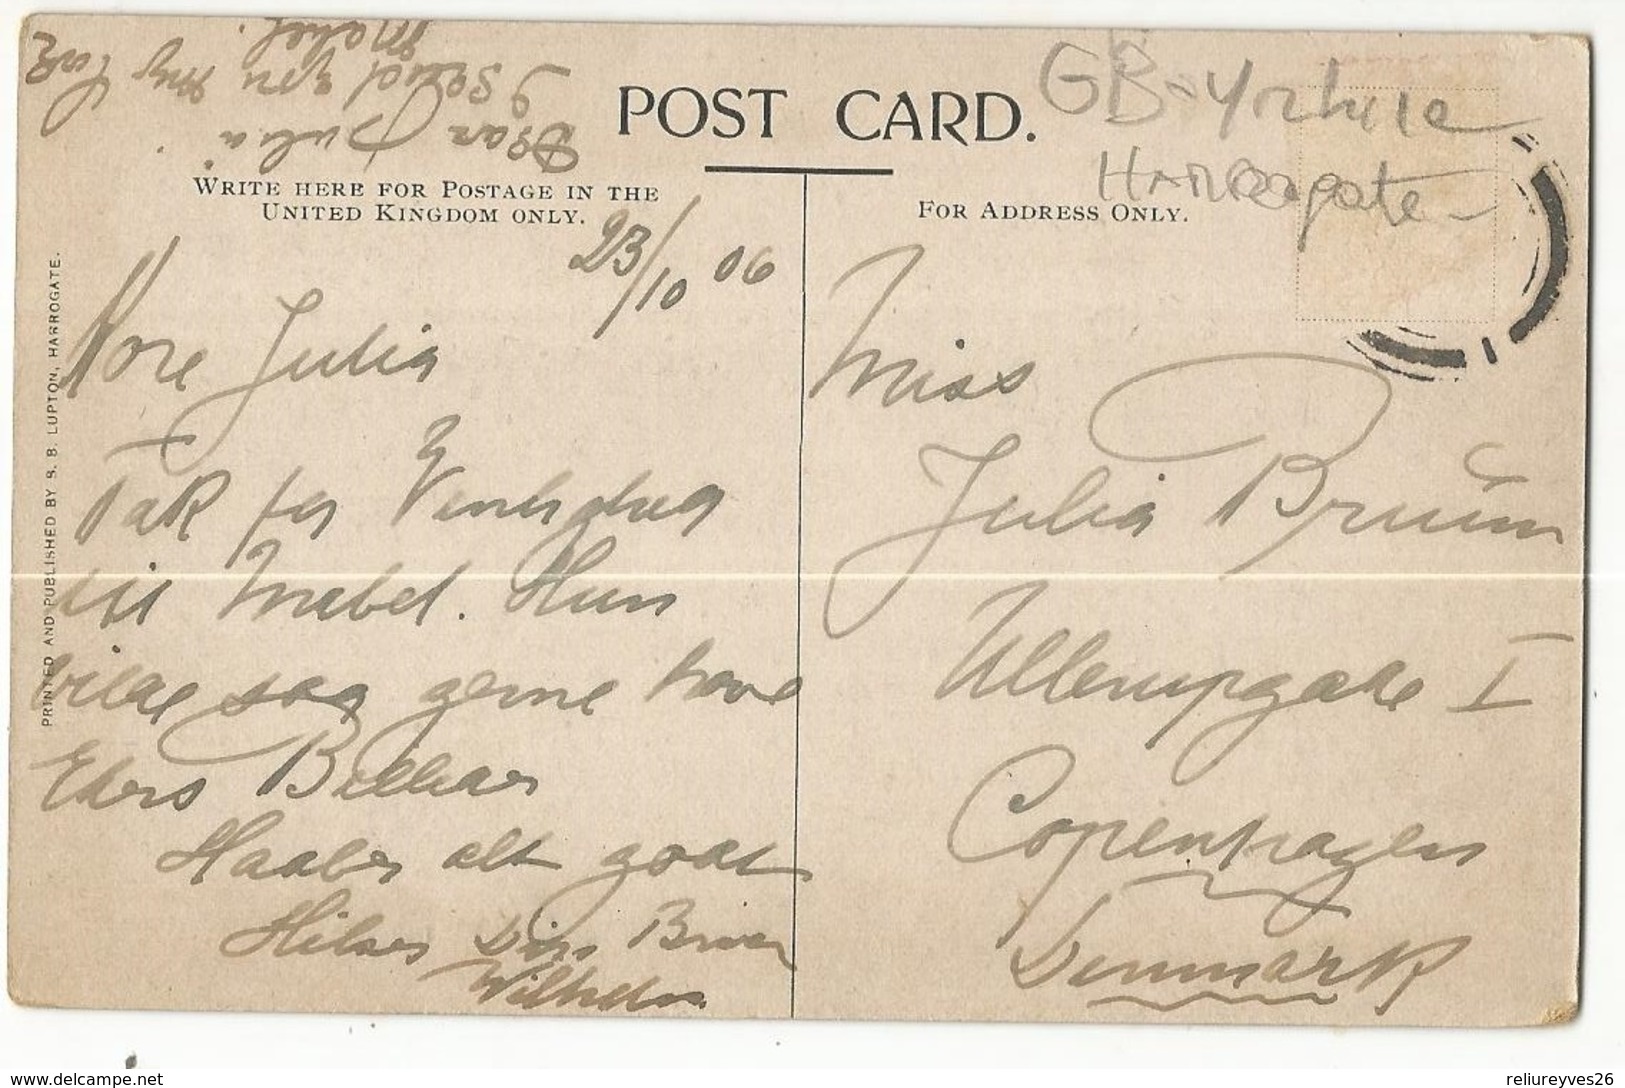 Dear Julia.
I send you my Love
Mabel.
POST CARD.
GB - Yorkshire
Harrogate -
WRITE HERE FOR POSTAGE IN THE
UNITED KINGDOM ONLY.
FOR ADDRESS ONLY.
PRINTED AND PUBLISHED BY S. B. LUPTON, HARROGATE.
23/10 06
Kære Julia
Tak for
til Mabel. Hun
vilde saa gerne have
Eders Billeder
Haaber alt godt
Hilsen Din
Wilhelm
Miss
Julia Bruun
Ullerupgade I
Copenhagen
Denmark
www.delcampe.net
reliureyves26